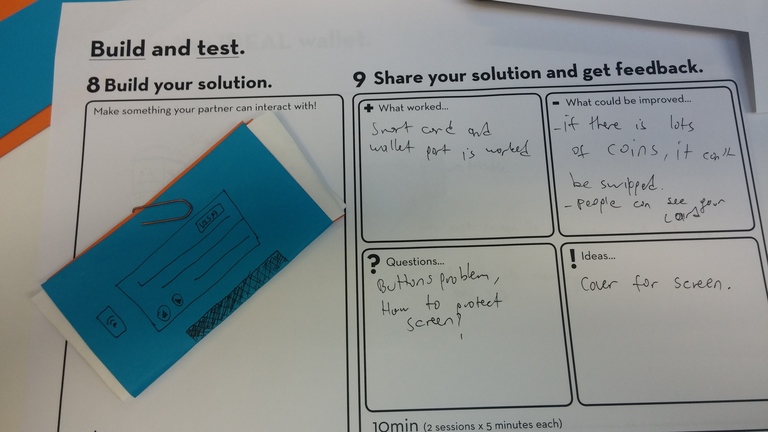 Build and test.
8 Build your solution.
Make something your partner can interact with!
9 Share your solution and get feedback.
+ What worked...
Smart card and
wallet part is worked
- What could be improved...
- if there is lots
of coins, it can't
be swipped.
- people can see your
card
? Questions...
Buttons problem,
How to protect
screen?
! Ideas...
Cover for screen.
10min (2 sessions x 5 minutes each)